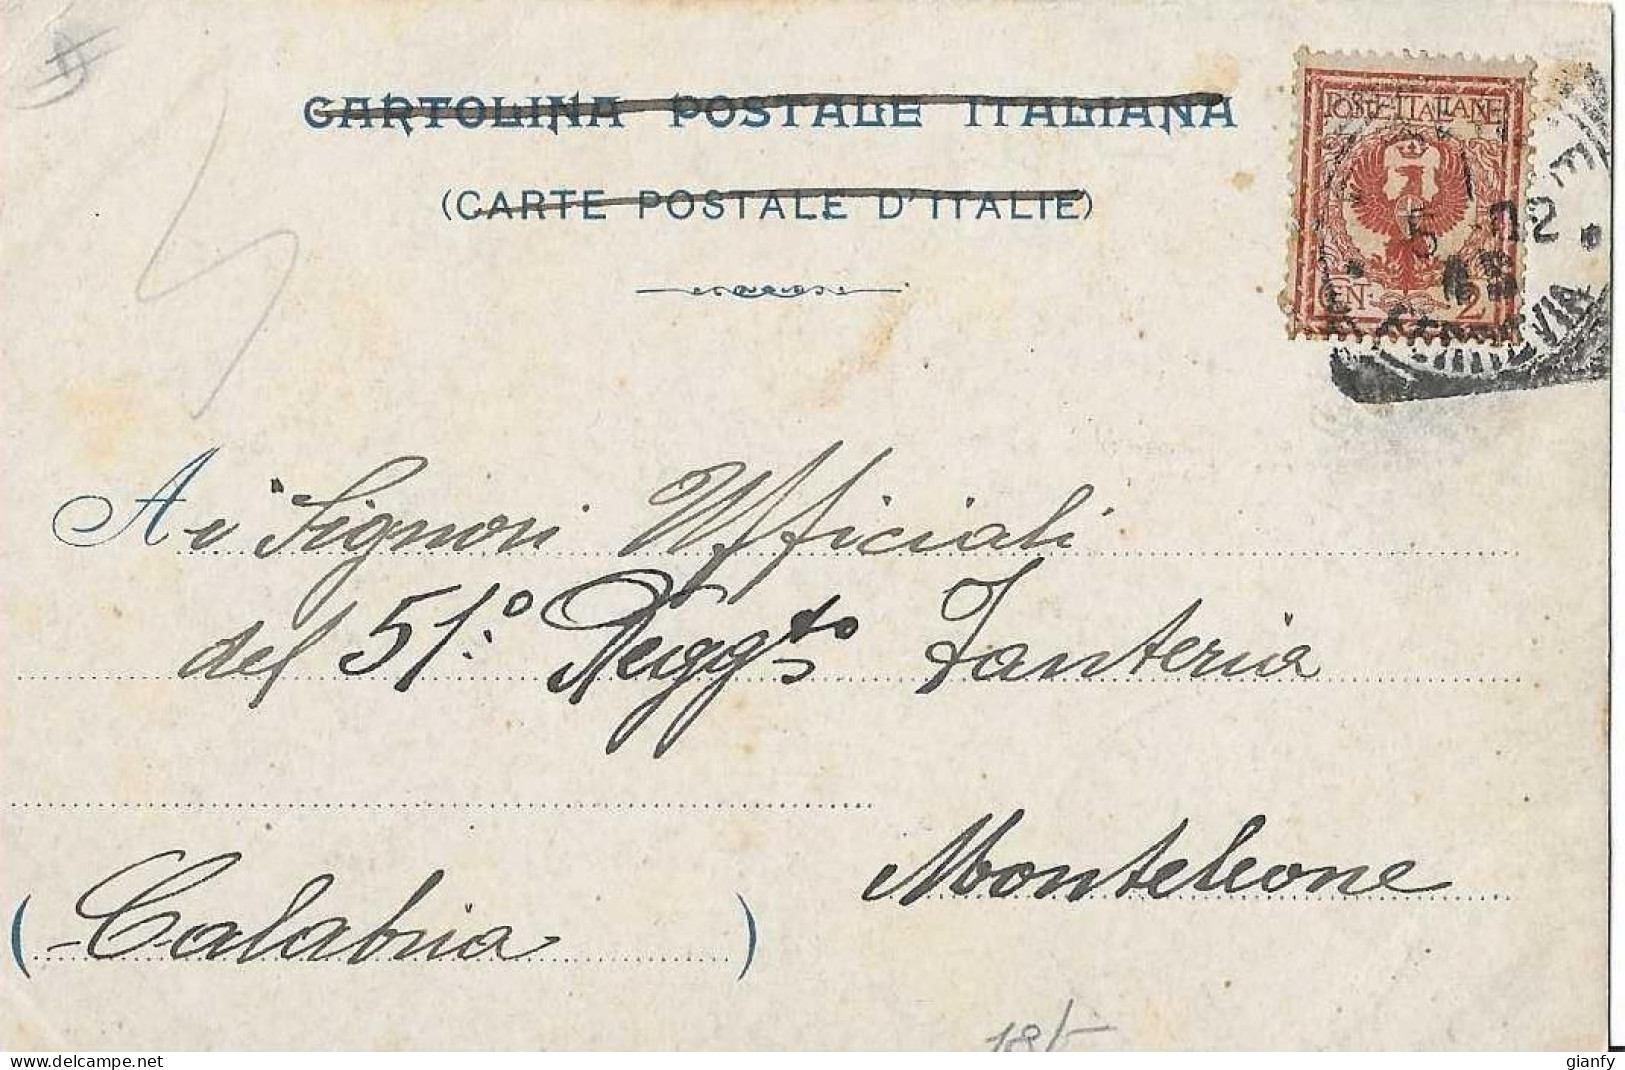 CARTOLINA POSTALE ITALIANA
(CARTE POSTALE D'ITALIE)
POSTE ITALIANE
CEN. 2
5 - 12
FERROVIA
Ai Signori Ufficiali
del 51.º Regg.to Fanteria
Monteleone
(Calabria)
18/-
gianfy